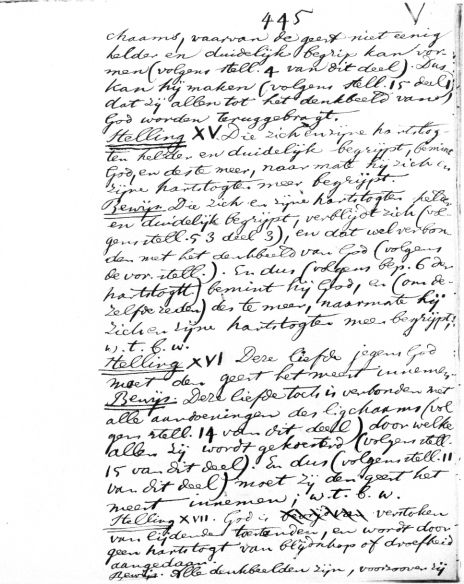 445
V
chaams, waarvan de geest niet eenig
helder en duidelijk begrip kan vor-
men (volgens stell. 4 van dit deel). Dus
kan hij maken (volgens stell. 15 deel 1)
dat zij allen tot het denkbeeld van
God worden teruggebragt.
Stelling XV. Die zich en zijne hartstog-
ten helder en duidelijk begrijpt, bemint
God, en deste meer, naar mate hij zich en
zijne hartstogten meer begrijpt.
Bewijs. Die zich en zijne hartstogten helder
en duidelijk begrijpt, verblijdt zich (vol-
gens stell. 53 deel 3), en dat wel verbon-
den met het denkbeeld van God (volgens
de vor. stell.). En dus (volgens bep. 6 der
hartstogtt) bemint hij God, en (om de-
zelfde reden) des te meer, naarmate hij
zich en zijne hartstogten meer begrijpt;
w. t. b. w.
Stelling XVI Deze liefde jegens God
moet den geest het meest innemen.
Bewijs. Deze liefde toch is verbonden met
alle aandoeningen des ligchaams (vol-
gens stell. 14 van dit deel) door welke
allen zij wordt gekoesterd (volgens stell.
15 van dit deel). En dus (volgens stell. 11
van dit deel) moet zij den geest het
meest innemen; w. t. b. w.
Stelling XVII. God is verstoken
van lijdende toestanden, en wordt door
geen hartstogt van blijdschap of droefheid
aangedaan.
Bewijs. Alle denkbeelden zijn, voor zoover zij